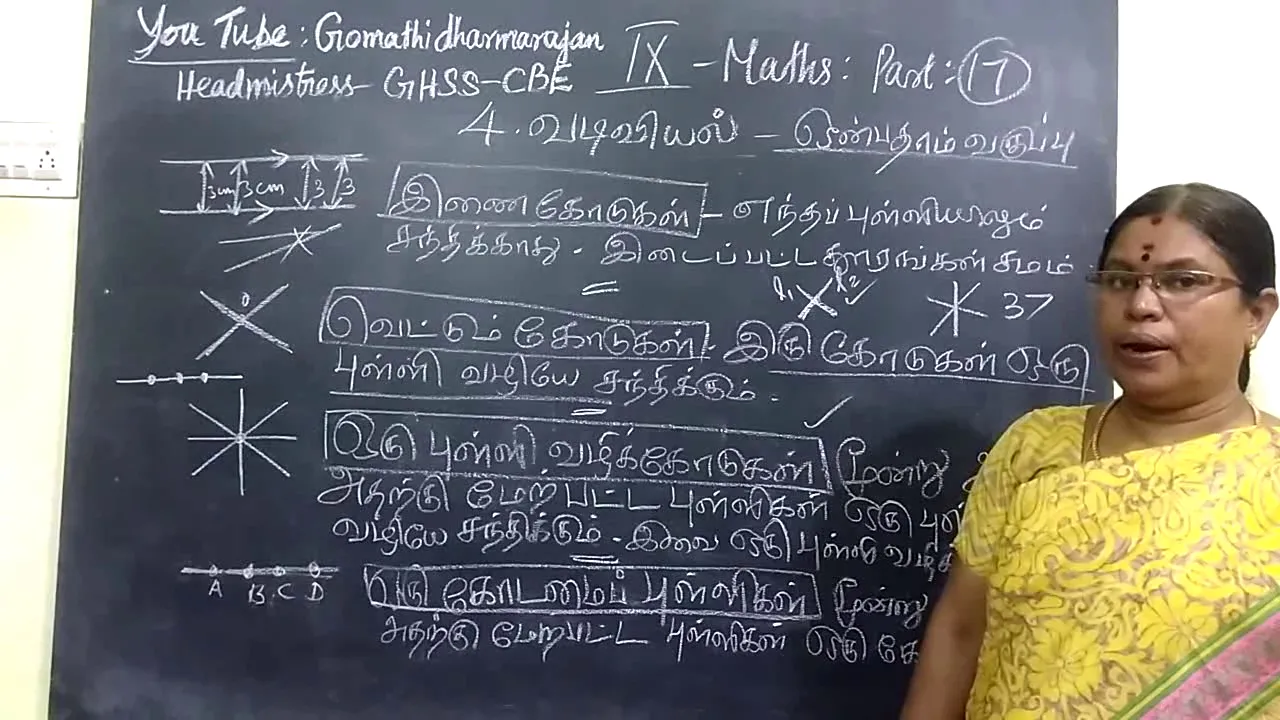 You Tube : Gomathidharmarajan
IX - Maths : Part : 17
Headmistress - GHSS - CBE
4. வடிவியல் - ஒன்பதாம் வகுப்பு
3cm 3cm 3 3
இணை கோடுகள் - எந்தப் புள்ளியிலும்
சந்திக்காது. இடைப்பட்ட தூரங்கள் சமம்.
l₁ l₂
37
வெட்டும் கோடுகள் - இரு கோடுகள் ஒரு
புள்ளி வழியே சந்திக்கும்.
ஒரு புள்ளி வழிக்கோடுகள் மூன்று
அதற்கு மேற்பட்ட புள்ளிகள் ஒரு
வழியே சந்திக்கும். இவை ஒரு புள்ளி
A B C D
ஒரு கோடமைப் புள்ளிகள் மூன்று
அதற்கு மேற்பட்ட புள்ளிகள் ஒரு